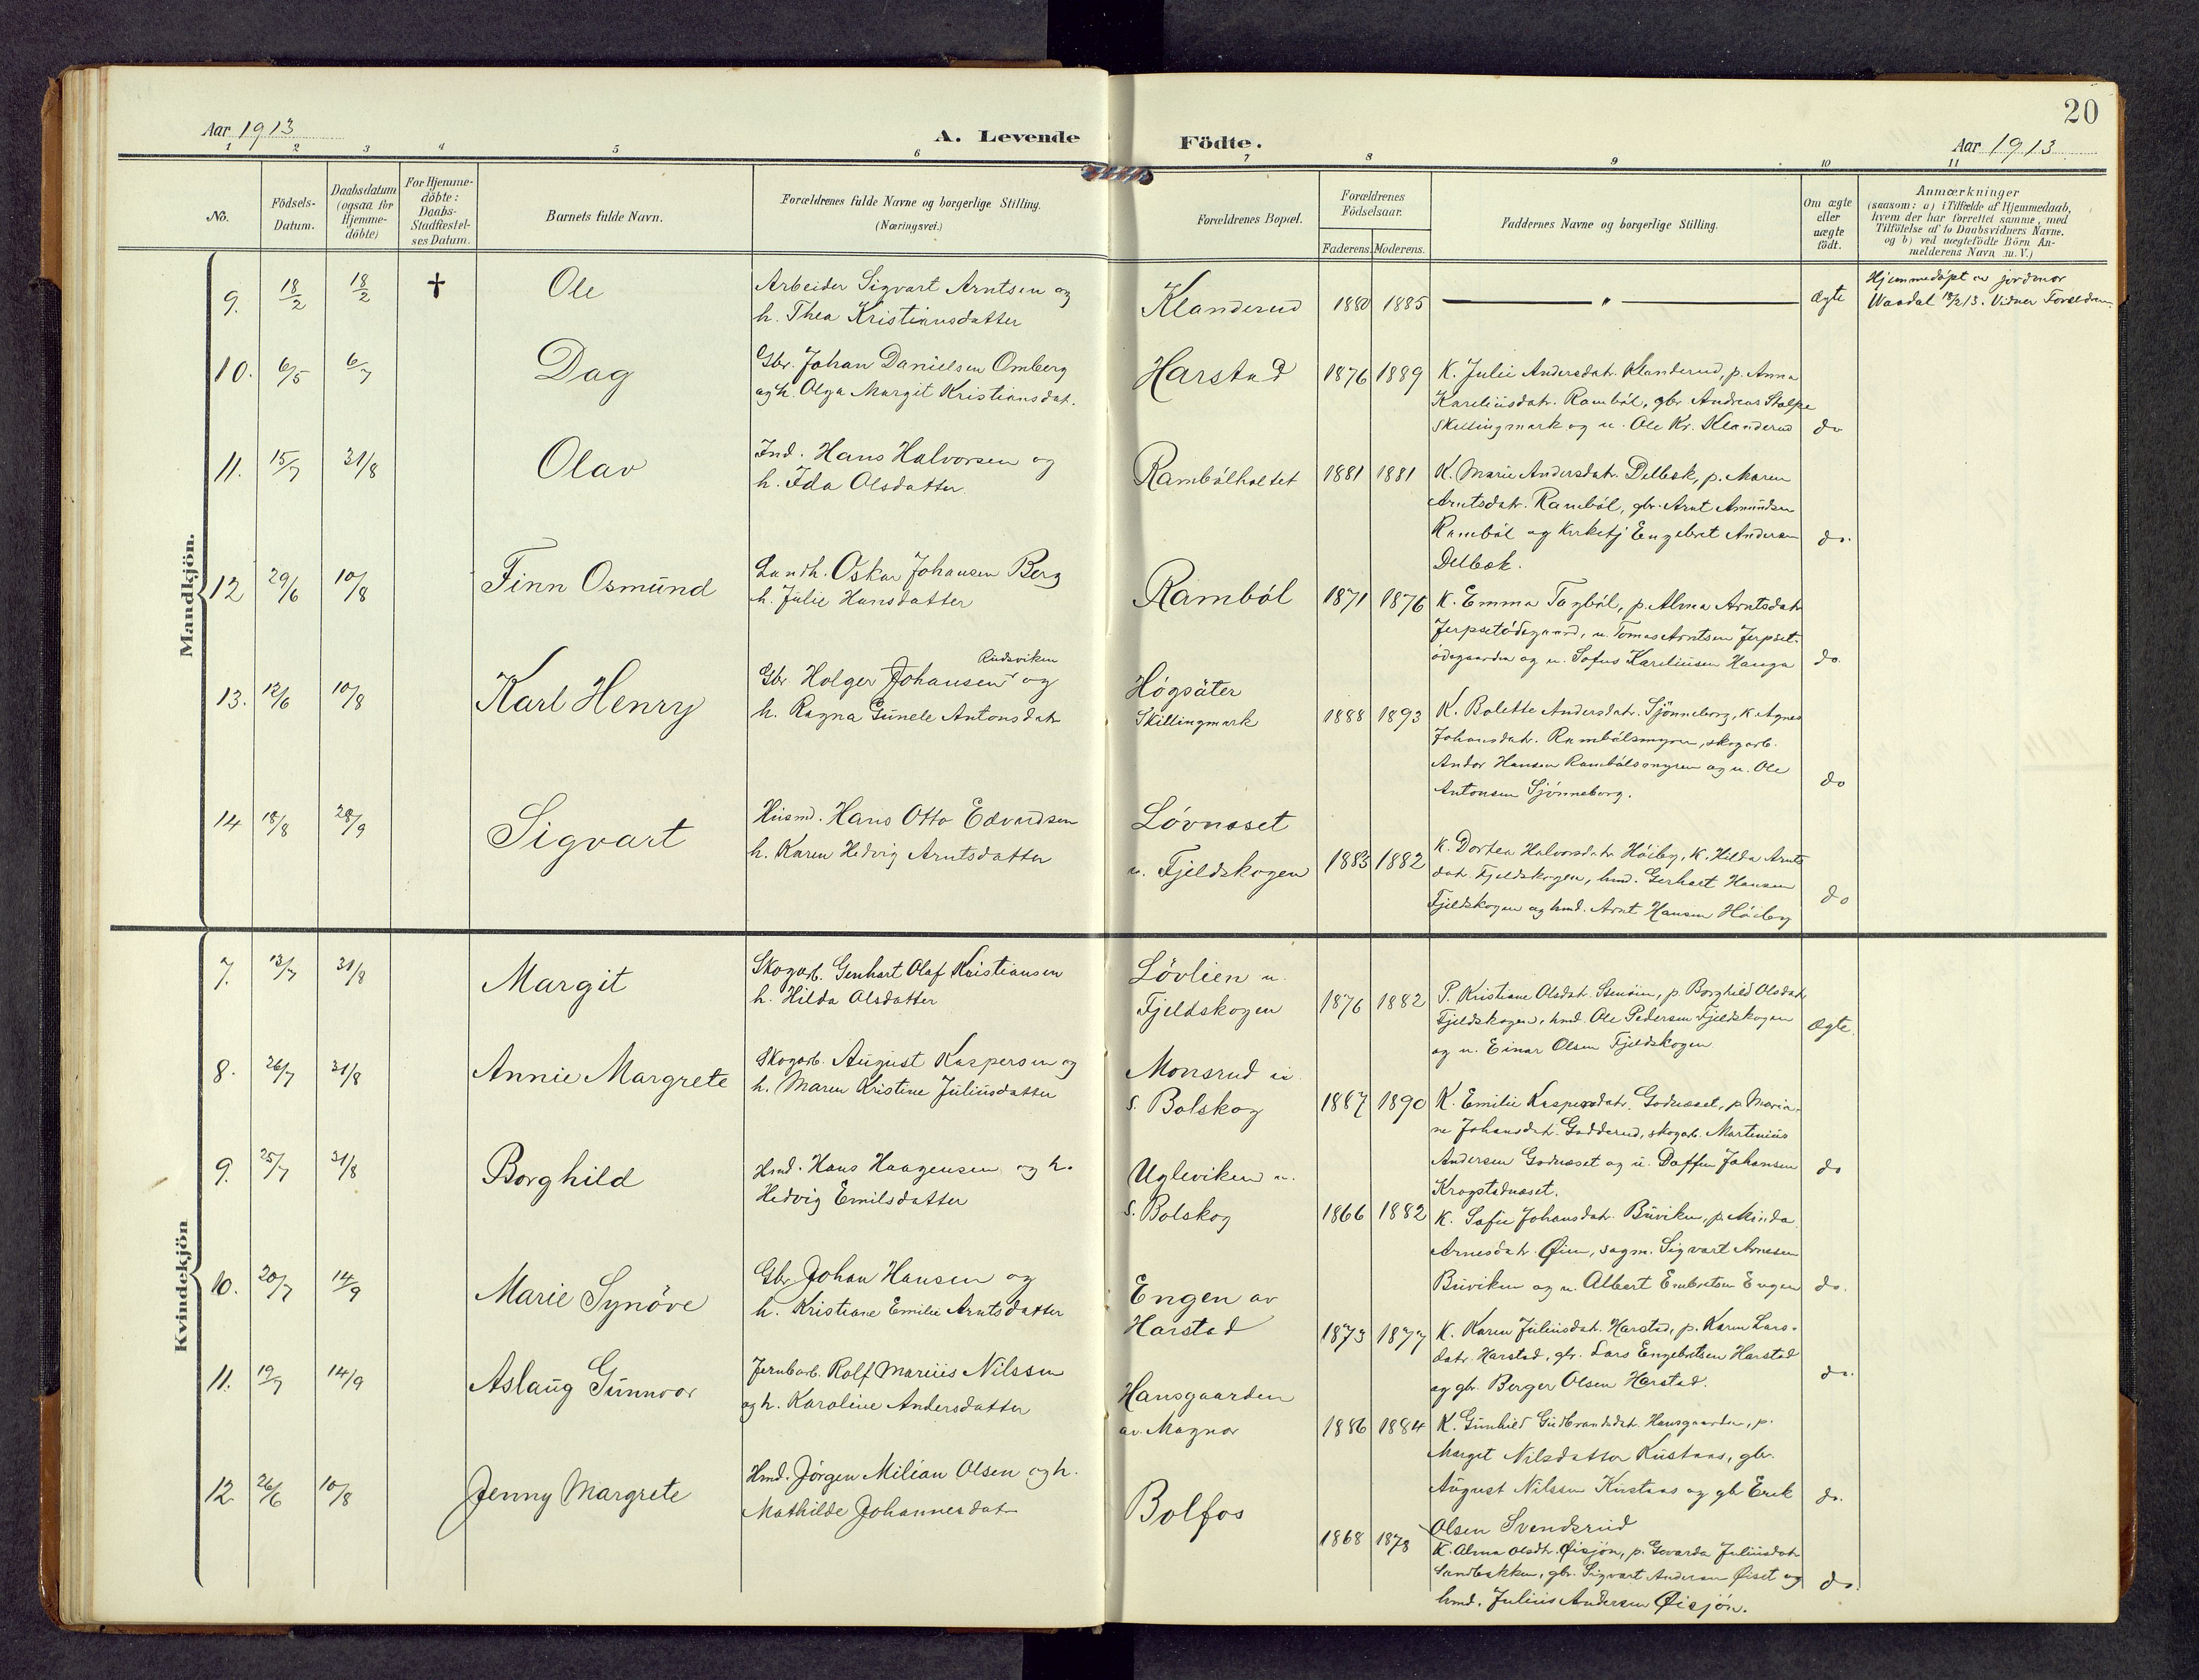 20
Aar 1913
A. Levende Födte.
Aar 1913
1 2 3 4 5 6 7 8 9 10 11
No.
Födsels-Datum.
Daabsdatum (ogsaa for Hjemme-döbte)
For Hjemme-döbte: Daabs-Stadfæstel-ses Datum.
Barnets fulde Navn.
Forældrenes fulde Navne og borgerlige Stilling. (Næringsvei.)
Forældrenes Bopæl.
Forældrenes Födselsaar.
Faderens. Moderens.
Faddernes Navne og borgerlige Stilling.
Om ægte eller uægte födt.
Anmærkninger
(saasom: a) i Tilfælde af Hjemmedaab,
hvem der har forrettet samme, med
Tilföielse af to Daabsvidners Navne.
og b) ved uægtefödte Börn An-
melderens Navn m. V.)
Mandkjön.
9. 18/2 18/2 † Ole
Arbeider Sigvart Arntsen og
h. Thea Kristiansdatter
Klanderud 1880 1885 — " — ægte
Hjemmedöpt av jordmor
Waadal 18/2 13. Vidner Forældrene
10. 6/5 6/7 Dag
Gbr. Johan Danielsen Omberg
og h. Olga Margit Kristiansdat.
Harstad 1876 1889
K. Julie Andersdatr. Klanderud, p. Anna
Kareliusdatr. Ramböl, gbr Andreas Stolpe
Skillingmark og u. Ole Kr. Klanderud do
11. 15/7 31/8 Olav
Ind. Hans Halvorsen og
h. Ida Olsdatter.
Rambölholtet 1881 1881
K. Marie Andersdatr. Delbæk, p. Maren
Arntsdatr. Ramböl, gbr. Arnt Amundsen
Ramböl og kirketj Engebret Andersen do.
Delbæk.
12 29/6 10/8 Finn Osmund
Landh. Oskar Johansen Berg
h. Julie Hansdatter
Ramböl 1871 1876
K. Emma Tagböl, p. Alma Arntsdatr
Jerpsetödegaard, u. Tomas Arntsen Jerpset-
ödegaarden og u. Sofus Kareliusen Hauga do
13. 12/6 10/8 Karl Henry
Rudsviken
Gbr. Holger Johansen og
h. Ragna Gunele Antonsdatr
Högsäter
Skillingmark 1888 1893
K. Bolette Andersdatr. Sjönneborg, K Agnes
Johansdatr. Rambölsmyren, skogarb.
Andor Hansen Rambölsmyren og u. Ole do
Antonsen Sjönneborg.
14 18/8 28/9 Sigvart
Husmd. Hans Otto Edvardsen
h. Karen Hedvig Arntsdatter
Lövnæset
u. Fjeldskogen 1883 1882
K. Dortea Halvorsdatr Höiby, K. Hilda Arnts
datr. Fjeldskogen, hmd. Gerhart Hansen
Fjeldskogen og hmd. Arnt Hansen Höiby do
Kvindekjön
7. 13/7 31/8 Margit
Skogarb. Genhart Olaf Kristiansen
h. Hilda Olsdatter
Lövlien u.
Fjeldskogen 1876 1882
P. Kristiane Olsdatr. , p. Borghild Olsdatr
Fjeldskogen, hmd. Ole Pedersen Fjeldskogen ægte.
og u. Einar Olsen Fjeldskogen.
8. 26/7 31/8 Annie Margrete
Skogarb. August Kaspersen og
h. Maren Kristine Juliusdatter
Monsrud u.
s. Bolskog 1887 1890
K. Emilie Kaspersdatr. Godnæset, p Maria-
ne Johansdatr. Godderud, skogarb. Martenius
Andersen Godnæset og u. Daffin Johansen do
Krogstadnæset.
9. 25/7 31/8 Borghild
Hmd. Hans Haagensen og h.
Hedvig Emilsdatter
Ugleviken u.
s. Bolskog 1866 1882
K. Sofie Johansdatr. Buviken, p. Minda
Arnesdatr. Øien, sagm. Sigvart Arnesen
Buviken og u. Albert Embretsen Engen do.
10. 20/7 14/9 Marie Synöve
Gbr. Johan Hansen og
h. Kristiane Emilie Arntsdatter
Engen av
Harstad 1873 1877
K. Karen Juliusdatr. Harstad, p. Karen Lars-
datr. Harstad, gbr. Lars Engebretsen Harstad
og gbr. Berger Olsen Harstad. do.
11. 19/7 14/9 Aslaug Gunnvor
Jernbarb. Rolf Marius Nilssen
og h. Karoline Andersdatter
Hansgaarden
av Magnor 1886 1884
K. Gunhild Gudbrandsdatr. Hansgaarden, p.
Margit Nilsdatter Kustaas, gbr.
August Nilssen Kustaas og gbr Erik do.
Olsen Svendsrud
12. 26/6 10/8 Jenny Margrete
Hmd. Jörgen Milian Olsen og h.
Mathilde Johannesdatr
Bolfos 1868 1878
K. Alma Olsdtr. Øisjön, p. Govarda Juliusdatr
Sandbakken, gbr. Sigvart Andersen Øiset og do.
hmd. Julius Andersen Øisjön.